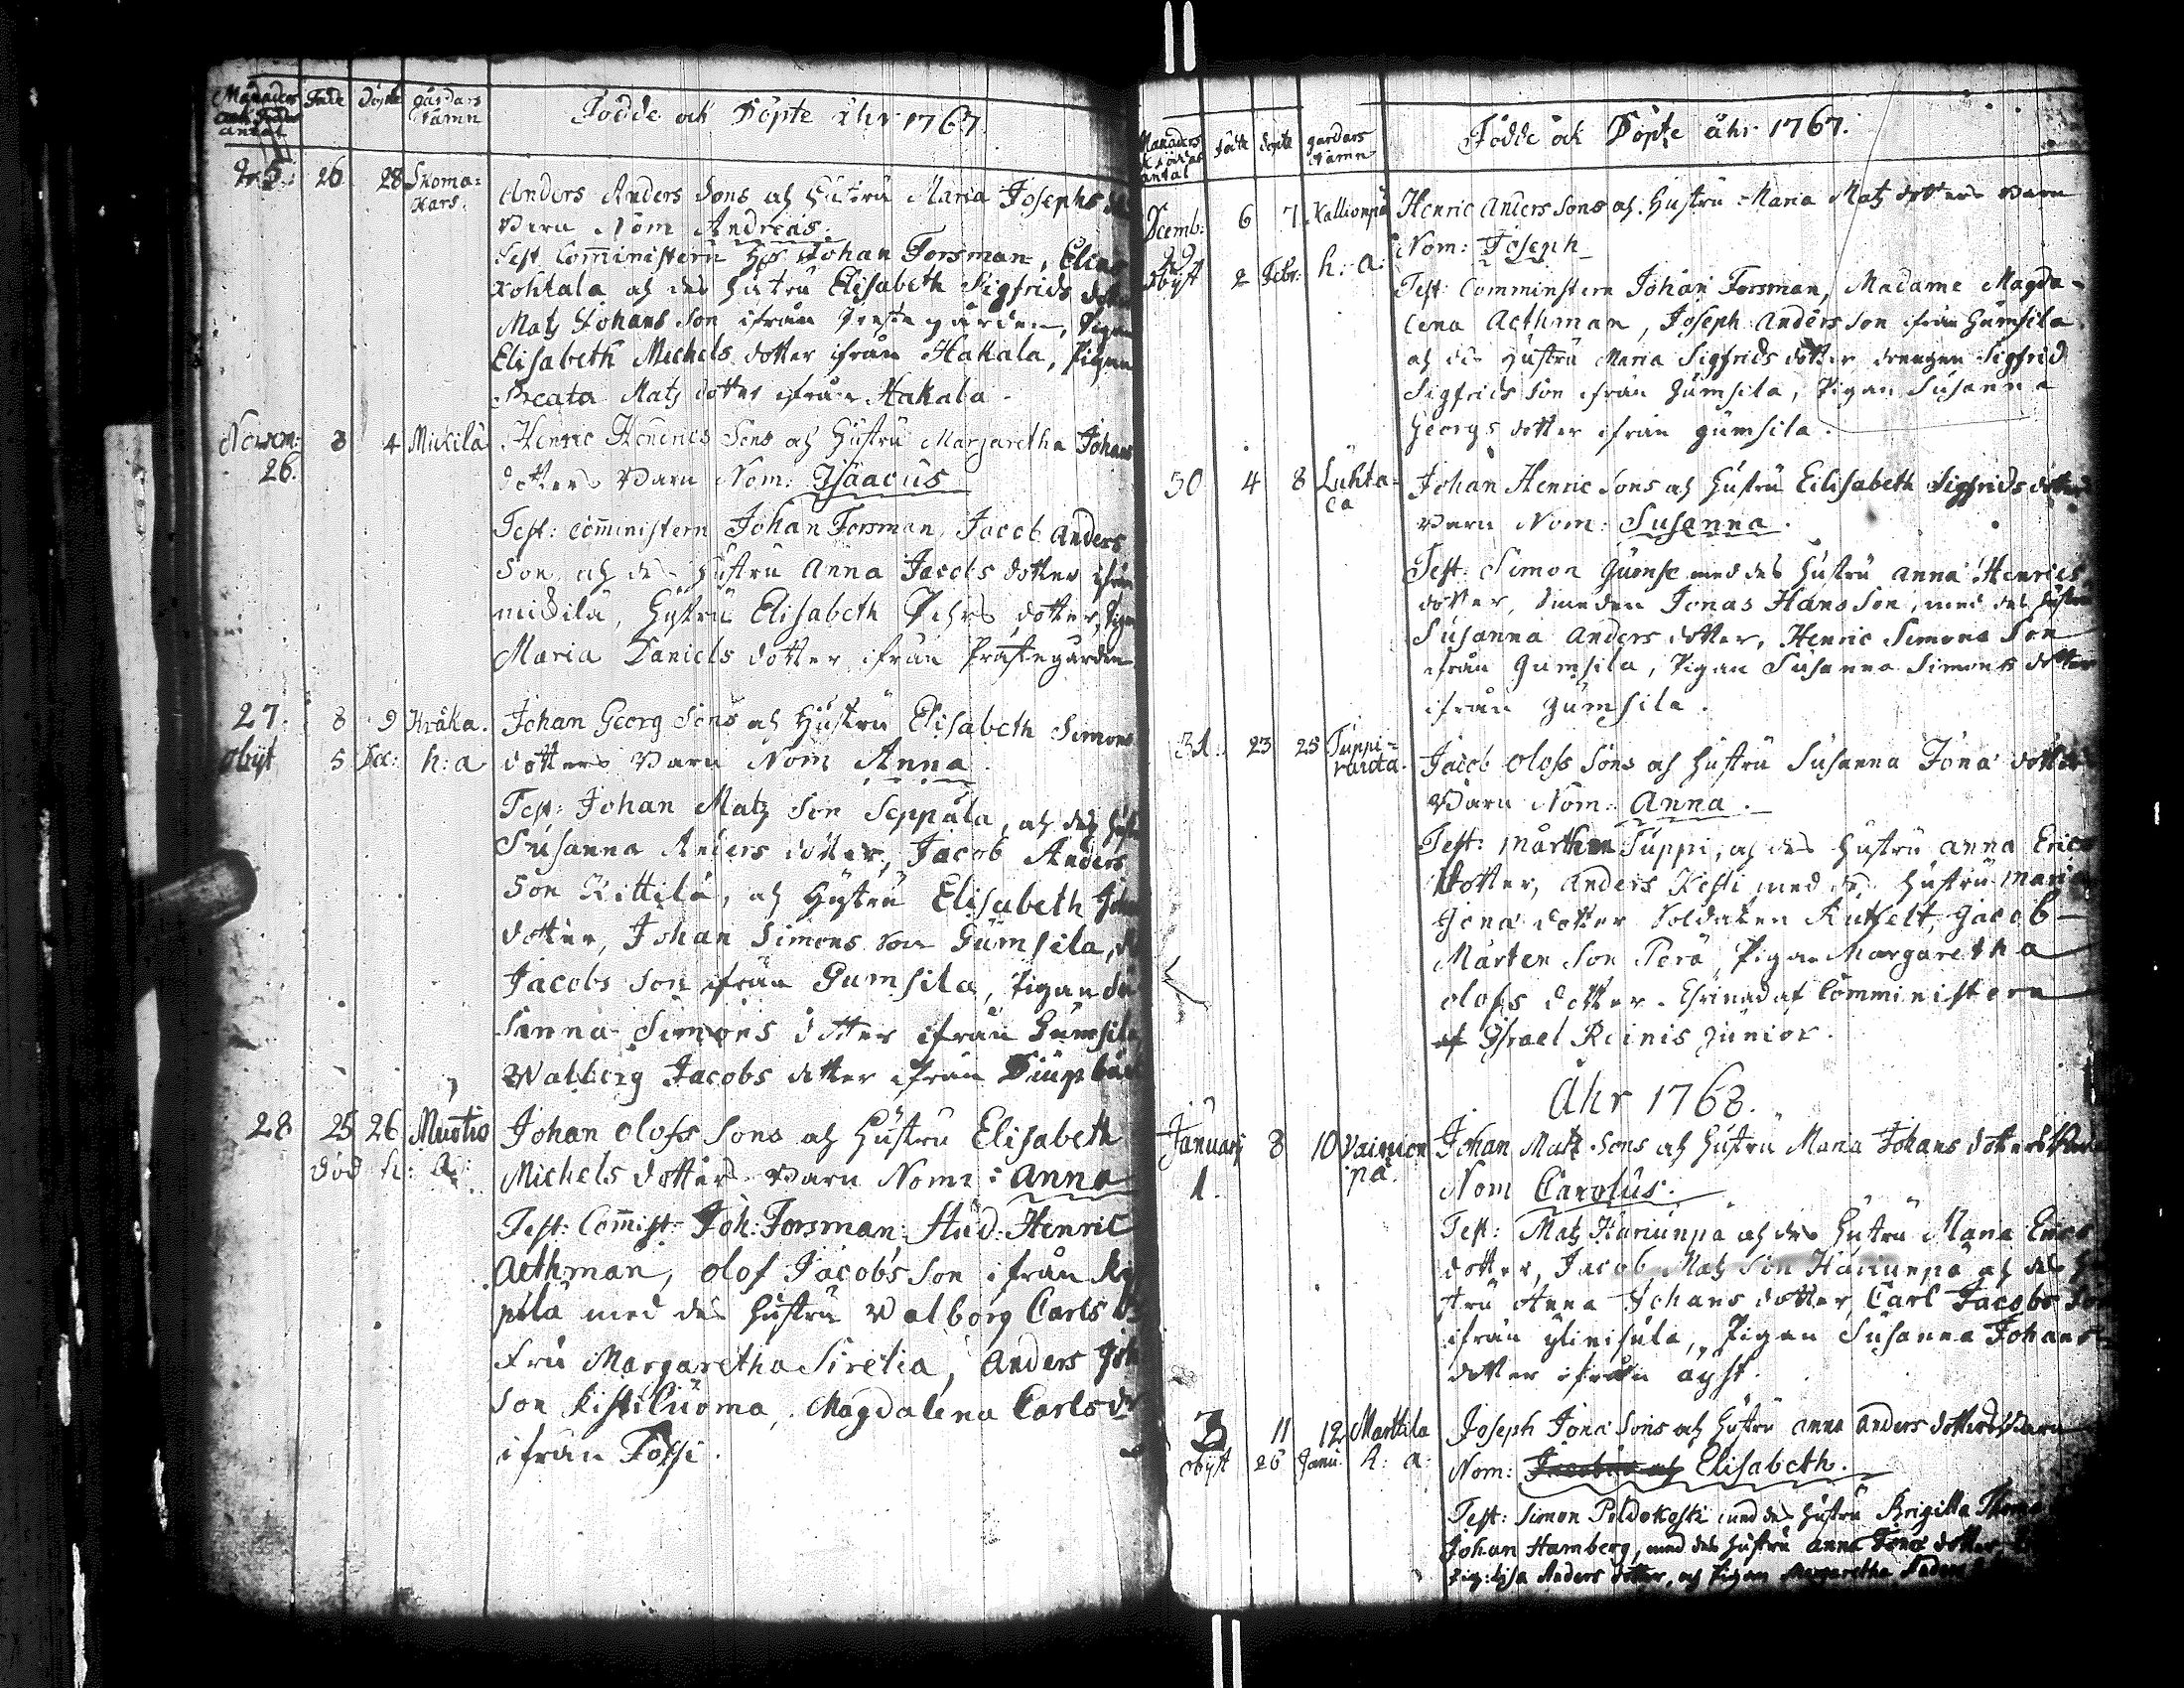 Månaders och Födes antal Föde Döpte gårdars namn Födde och Döpte åhr 1767.
25. 26 28 Skoma= Kars. Anders Anders Sons och Hustru Maria Josephs
Barn Nom Andreas.
Test Comministern Johan Forsman, Elias
Kohtala och des Hustru Elisabeth Sigfrids dotter
Matz Johans Son ifrån Prestegården, Pigan
Elisabeth Michels dotter ifrån Hakala, Pigan
Beata Matz dotter ifrån Hakala.
Novem: 26. 3 4 Mickilä Henric Henrics Sons och Hustru Margaretha Johans
dotters Barn Nom: Isaacus
Test: Comministern Johan Forsman, Jacob Anders
Son och des Hustru Anna Jacobs dotter ifrån
Mickilä, Hustru Elisabeth Pehrs dotter, Pigan
Maria Daniels dotter ifrån Prästegården
27. 8 9 Kråka. Johan Georg Sons och Hustru Elisabeth Simons
obijt 5 Dec: h: a dotters Barn Nom Anna.
Test: Johan Matz Son Seppälä, och des Hust
Susanna Anders dotter, Jacob Anders
Son Kittilä, och Hustru Elisabeth
dotter, Johan Simons Son Gumsila,
Jacobs Son ifrån Gumsila, Pigan Su
sanna Simons dotter ifrån Gumsila
Walberg Jacobs dotter ifrån
28 25 26 Muotio Johan Olofs Sons och Hustru Elisabeth
död h: a: Michels dotters Barn Nom: Anna
Test: Commist: Joh: Forsman, Stud: Henric
Aethman, Olof Jacobs Son ifrån
pila med des Hustru Walborg Carls
Fru Margaretha Sirelia, Anders Joh
Son Kistiluoma, Magdalena Carls d
ifrån Fossi.
Månaders födes antal födde döpte gardars namn Födde och Döpte åhr 1767.
Decemb: 29 6 7 Kallionpä Henric Anders Sons och Hustru Maria Matz dotters Barn
Nom: Joseph
obijt 2 Febr: h: a:
Test: Comministern Johan Forsman, Madame Magda-
lena Aethman, Joseph Anders Son ifrån Gumsila
och des Hustru Maria Sigfrids dotter drengen Sigfrid
Sigfrids Son ifrån Gumsila, Pigan Susanna
Georgs dotter ifrån Gumsila.
30 4 8 Luhta= la Johan Henric Sons och Hustru Elisabeth Sigfrids dotters
Barn Nom: Susanna.
Test: Simon Gumse med des Hustru Anna Henrics
dotter, Smeden Jonas Hans Son, med des Hustru
Susanna Anders dotter, Henric Simons Son
ifrån Gumsila, Pigan Susanna Simons dotter
ifrån Gumsila.
31. 23 25 Tuppi= rauta. Jacob Olofs Sons och Hustru Susanna Jona dotters
Barn Nom: Anna.
Test: Mårthen Tuppi, och des Hustru Anna Erics
dotter, Anders Kesti med des Hustru Maria
Jona dotter Soldaten Rutfelt, Jacob
Mårten Son Perä, Pigan Margaretha
Olofs dotter. Chrinad af Comministern
af Israel Reinis Junior.
Åhr 1768.
Januarij 1. 8 10 Vainion pä Johan Matz Sons och Hustru Maria Johans dotters Barn
Nom Carolus.
Test: Matz Hariunpä och des Hustru Maria Erics
dotter, Jacob Matz Son Hariunpä och des Hu
stru Anna Johans dotter, Carl Jacobs Son
ifrån Ylinisula, Pigan Susanna Johans
dotter ifrån Äyst.
2 11 12 Marttila Joseph Jona Sons och Hustru Anna Anders dotters Barn
obijt 26 Janu. h: a: Nom: Jacobus och Elisabeth.
Test: Simon Poldokoski med des Hustru Brigitta Thomæ
Johan Hamberg, med des Hustru Anna Jona dotter
Pig: Lisa Anders dotter, och Pigan Margaretha